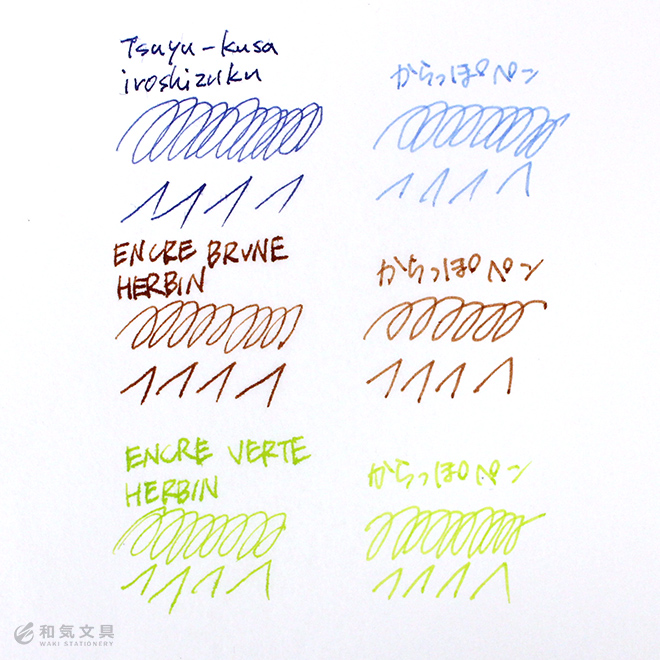 Tsuyu-kusa
iroshizuku
からっぽペン
ENCRE BRUNE
HERBIN
からっぽペン
ENCRE VERTE
HERBIN
からっぽペン
和気文具
WAKI STATIONERY